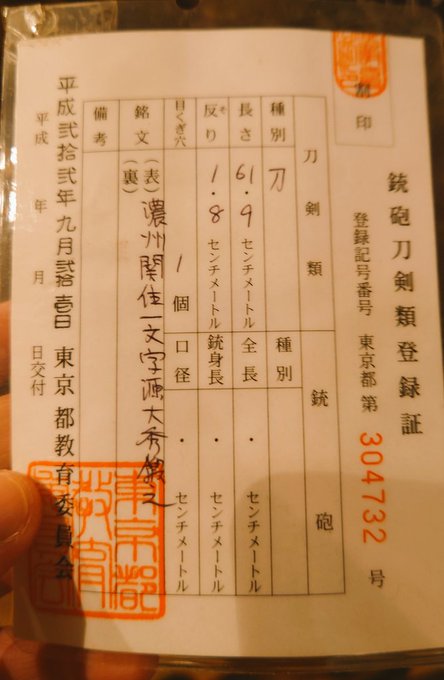 割印
銃砲刀剣類登録証
登録記号番号 東京都 第 304732 号
刀剣類 銃砲
種別 刀 種別
長さ 61.9 センチメートル 全長 ・ センチメートル
反り そ 1.8 センチメートル 銃身長 ・ センチメートル
目くぎ穴 1 個 口径 ・ センチメートル
銘文 (表) 濃州関住一文字源大秀鍛之
(裏)
備考
平成弐拾弐年九月弐拾壱日 東京都教育委員会
平成 年 月 日交付